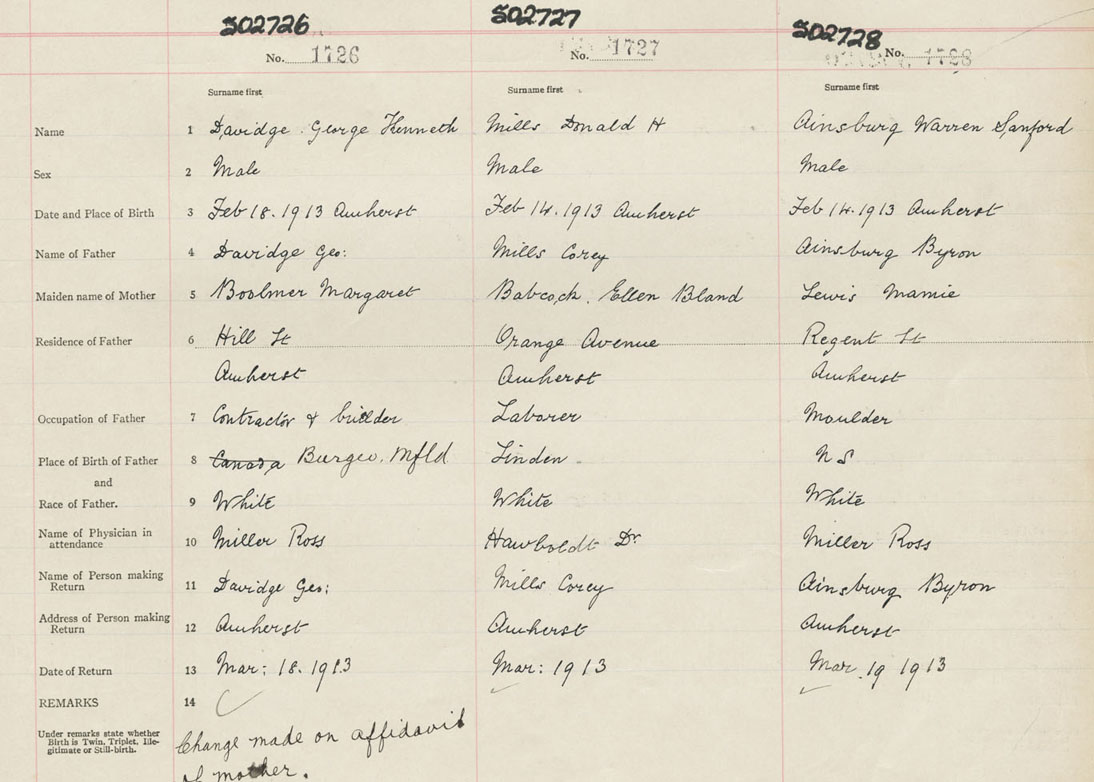 S02726 S02727 S02728
No. 1726 No. 1727 No. 1728
Surname first Surname first Surname first
Name 1 Davidge George Kenneth Mills Donald H Ainsburg Warren Sanford
Sex 2 Male Male Male
Date and Place of Birth 3 Feb 18. 1913 Amherst Feb 14. 1913 Amherst Feb 14. 1913 Amherst
Name of Father 4 Davidge Geo: Mills Corey Ainsburg Byron
Maiden name of Mother 5 Boolmer Margaret Babcock. Ellen Bland Lewis Mamie
Residence of Father 6 Hill St Orange Avenue Regent St
Amherst Amherst Amherst
Occupation of Father 7 Contractor & builder Laborer Moulder
Place of Birth of Father 8 Canada Burgeo, Nfld Linden NS
and
Race of Father. 9 White White White
Name of Physician in
attendance 10 Miller Ross Hawboldt Dr Miller Ross
Name of Person making
Return 11 Davidge Geo: Mills Corey Ainsburg Byron
Address of Person making
Return 12 Amherst Amherst Amherst
Date of Return 13 Mar: 18. 1913 Mar: 1913 Mar. 19 1913
REMARKS 14
Under remarks state whether
Birth is Twin, Triplet, Ille-
gitimate or Still-birth.
Change made on affidavit
of mother.